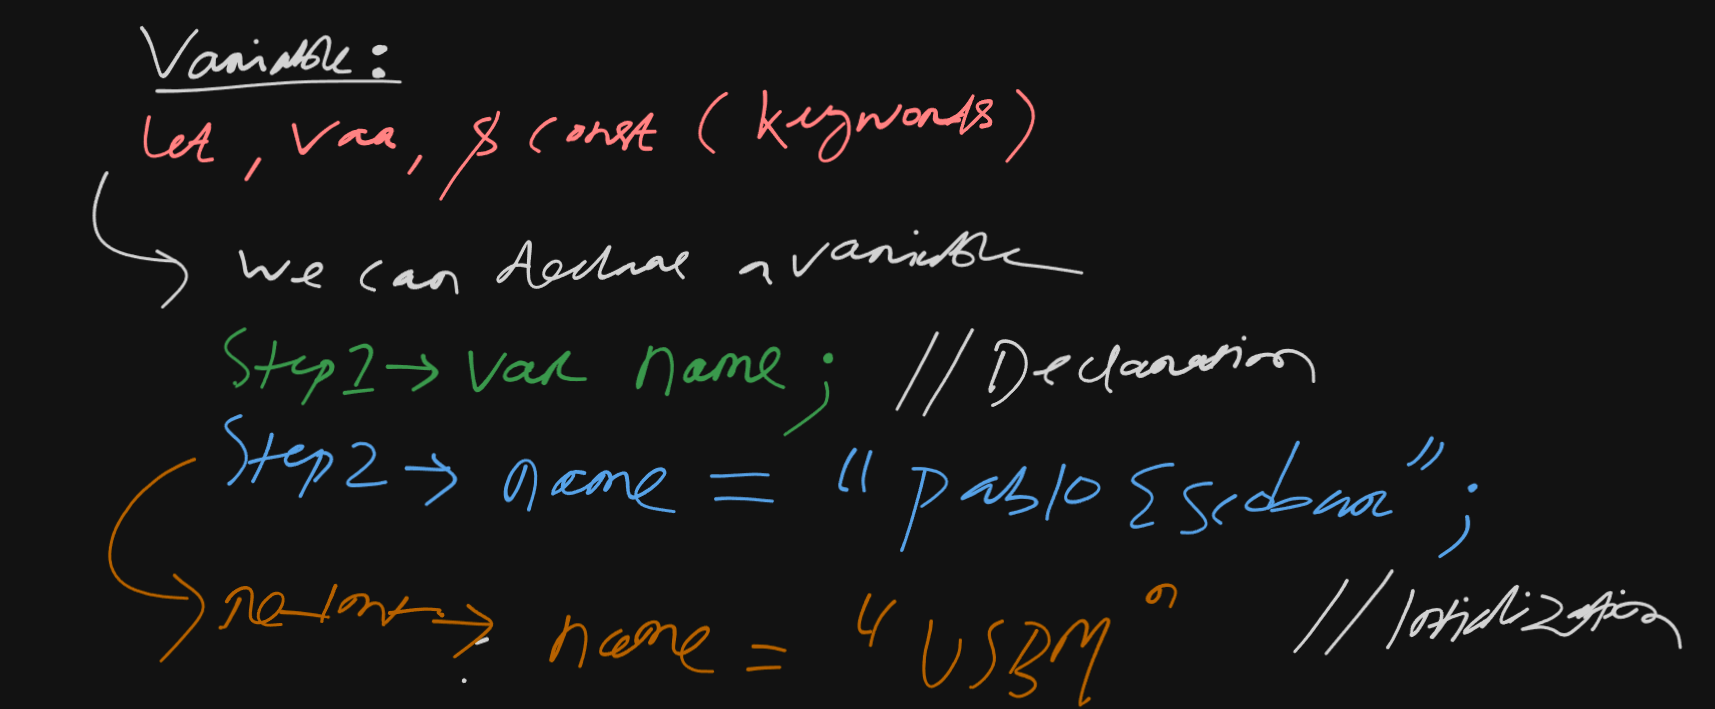 Variable:
let, var, & const (keywords)
we can declare a variable
Step 1 → var name; // Declaration
Step 2 → name = "pablo Escobar";
re-Int → name = "USBM" // Initialization